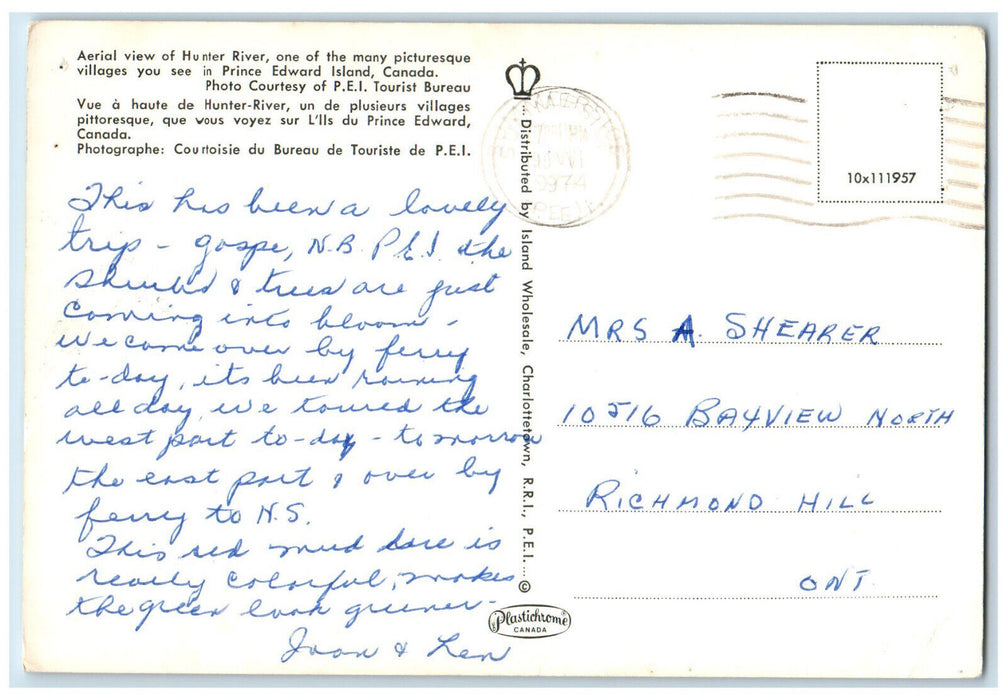 Aerial view of Hunter River, one of the many picturesque
villages you see in Prince Edward Island, Canada.
Photo Courtesy of P.E.I. Tourist Bureau
Vue à haute de Hunter-River, un de plusieurs villages
pittoresque, que vous voyez sur L'Ils du Prince Edward,
Canada.
Photographe: Courtoisie du Bureau de Touriste de P.E.I.
This has been a lovely
trip - gaspe, N.B. P.E.I. the
Shrubs & trees are just
coming into bloom -
We came over by ferry
to-day, its been raining
all day, we toured the
west part to-day - tomorrow
the east part & over by
ferry to N.S.
This red mud here is
really colorful, makes
the green look greener -
Joan & Len
Distributed by Island Wholesale, Charlottetown, R.R.1., P.E.I. ©
Plastichrome
CANADA
1974
10x111957
MRS A. SHEARER
10516 BAYVIEW NORTH
RICHMOND HILL
ONT.